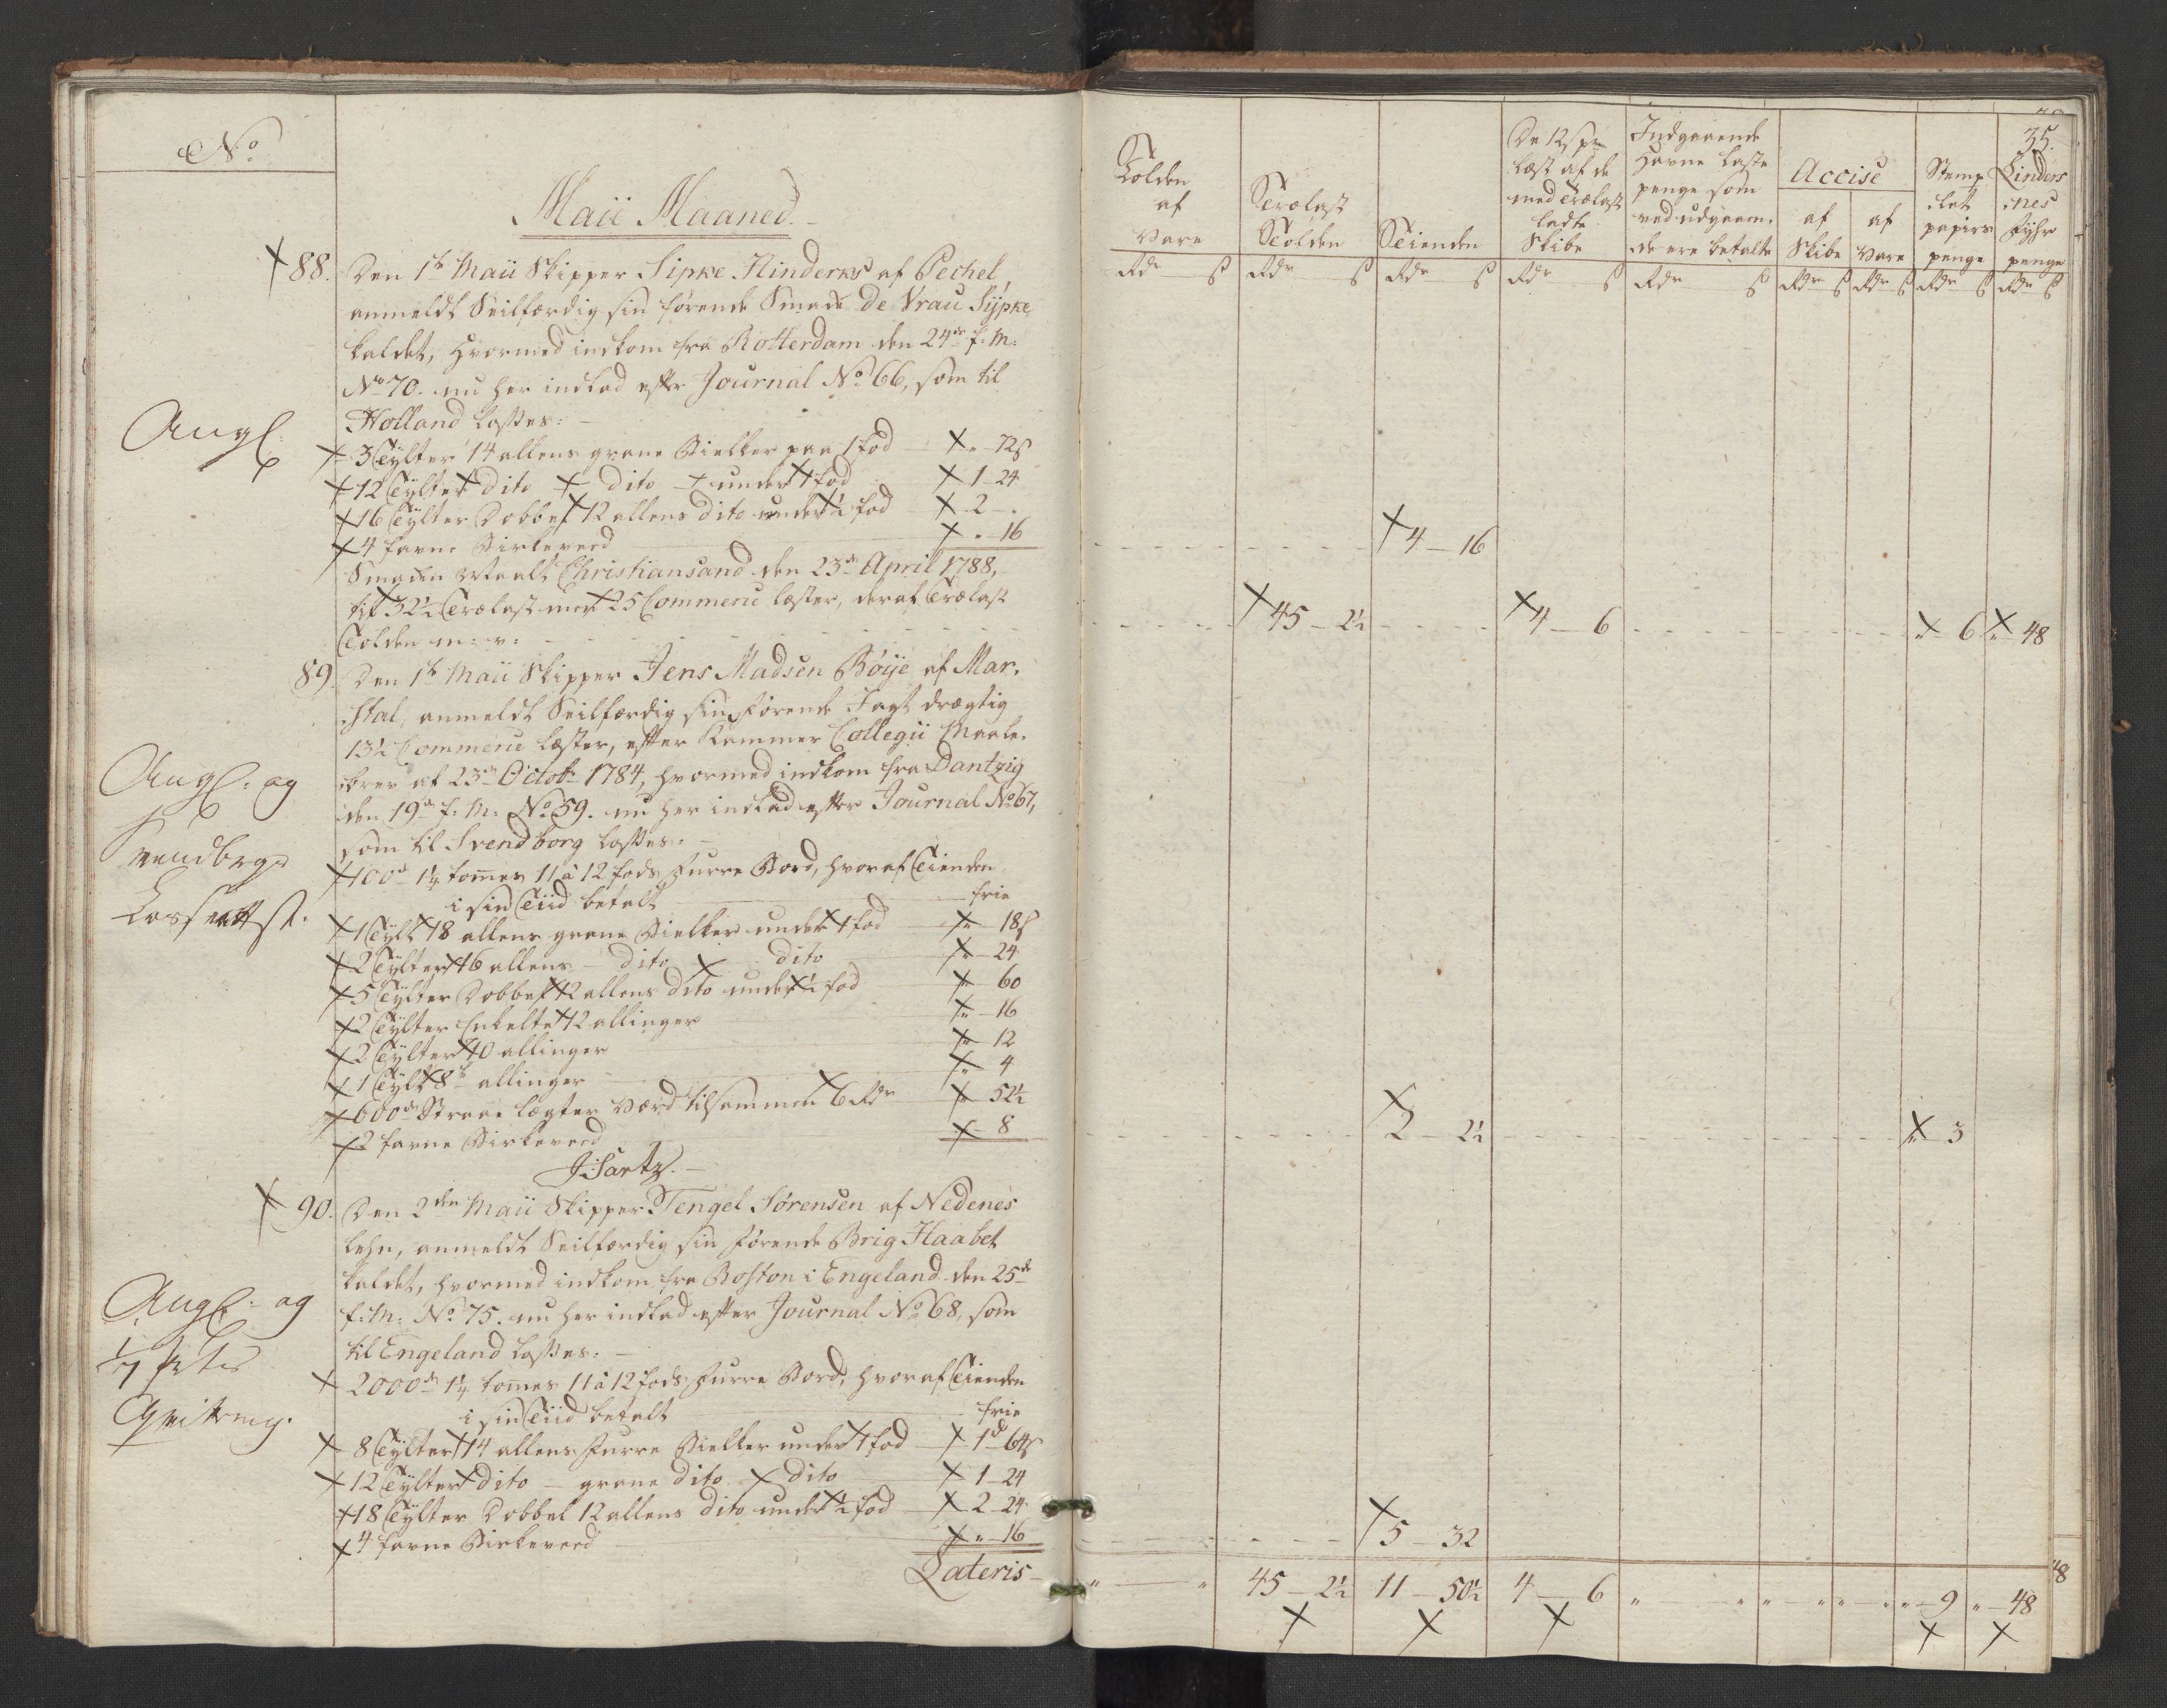 No
Maii Maaned
88. Den 1te Maii Skipper Sipke Hinderks af Pechel,
anmeldt Seilfærdig sin førende Smak De Vrau Sÿpke,
kaldet, hvormed indkom fra Rotterdam den 24de f: M:
No 70. nu her indlad efter Journal No 66, som til
Holland losses:
Angl:
3 Tÿlter 14 allens grane Bielker paa 1 fod " 72 s
12 Tÿlter dito dito under 1 fod 1 - 24
16 Tÿlter Dobbel 12 allens dito under ½ fod 2 - "
4 favne Birkeveed " - 16
4 - 16
Smakken Maalt Christiansand den 23de April 1788,
til 32½ Trælast mod 25 Commerce læster, deraf Trælast
Tolden m: v:
45 - 2½ 4 - 6 " 6 " 48
89. Den 1te Maii Skipper Jens Madsen Böije af Mar-
stal, anmeldt Seilfærdig sin førende Jagt drægtig
13½ Commerce læster, efter Kammer Collegii Maale-
brev af 23de Octobr 1784, hvormed indkom fra Dantzig
den 19de f: M: No 59. nu her indlad efter Journal No 67,
som til Svendborg losses:
Angl: og
Svendborgs
100de 1¼ tommes 11 à 12 fods Furre Bord, hvoraf Tienden
i sin Tiid betalt frie
1 Tÿlt 18 allens grane Bielker under 1 fod " 18 s
2 Tÿlter 16 allens dito dito " 24
5 Tÿlter Dobbel 12 allens dito under ½ fod " 60
2 Tÿlter Enkelte 12 allinger " 16
2 Tÿlter 10 allinger " 12
1 Tÿlt 8te allinger " 4
600de Straae Lægter Værd tilsammen 6 Rdr " 52½
2 favne Birkeveed " 8
2 - 2½ " 3
90. Den 2den Maii Skipper Tengel Sørensen af Nedenes
Lehn, anmeldt Seilfærdig sin førende Brig Haabet
kaldet, hvormed indkom fra Boston i Engeland den 25de
f: M: No 75. nu her indlad efter Journal No 68, som
til Engeland losses:
Angl: og
2000de 1¼ tommes 11 à 12 fods Furre Bord, hvoraf Tienden
i sin Tiid betalt frie
8 Tÿlter 14 allens Furre Bielker under 1 fod 1d 64 s
12 Tÿlter dito grane dito dito 1 - 24
18 Tÿlter Dobbel 12 allens dito under ½ fod 2 - 24
4 favne Birkeveed " - 16
5 - 32
Lateris
" " 45 - 2½ 11 - 50½ 4 - 6 " " " " " " " 9 " 48
35.
Tolden
af
Vare
Trælast
Tolden
Tienden
De 12 s pr
læst af de
med Trælast
ladte
Skibe
Indgaaende
Havne Laste
penge som
ved udgaaen-
de ere betalte
Accise
af
Skibe
af
Vare
Stemp-
let
papirs
penge
Linders-
nes
Fÿhr
penge
Rdr s Rdr s Rdr s Rdr s Rdr s Rdr s Rdr s Rdr s Rdr s
48